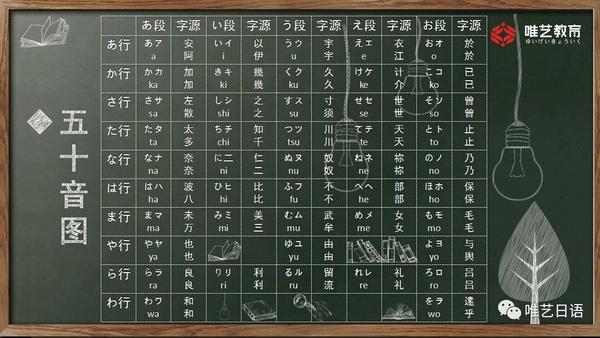 唯艺教育
ゆいげいきょういく
五十音图
あ段 字源 い段 字源 う段 字源 え段 字源 お段 字源
あ行 あア 安 いイ 以 うウ 宇 えエ 衣 おオ 於
a 阿 i 伊 u 宇 e 江 o 於
か行 かカ 加 きキ 幾 くク 久 けケ 计 こコ 己
ka 加 ki 幾 ku 久 ke 介 ko 己
さ行 さサ 左 しシ 之 すス 寸 せセ 世 そソ 曽
sa 散 shi 之 su 须 se 世 so 曽
た行 たタ 太 ちチ 知 つツ 川 てテ 天 とト 止
ta 多 chi 千 tsu 川 te 天 to 止
な行 なナ 奈 に二 仁 ぬヌ 奴 ねネ 祢 のノ 乃
na 奈 ni 二 nu 奴 ne 祢 no 乃
は行 はハ 波 ひヒ 比 ふフ 不 へヘ 部 ほホ 保
ha 八 hi 比 fu 不 he 部 ho 保
ま行 まマ 末 みミ 美 むム 武 めメ 女 もモ 毛
ma 万 mi 三 mu 牟 me 女 mo 毛
や行 やヤ 也 ゆユ 由 よヨ 与
ya 也 yu 由 yo 與
ら行 らラ 良 りリ 利 るル 留 れレ 礼 ろロ 吕
ra 良 ri 利 ru 流 re 礼 ro 吕
わ行 わワ 和 をヲ 遠
wa 和 wo 乎
唯艺日语